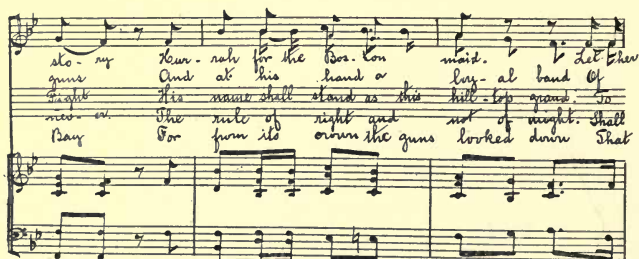 sto - ry Hur - rah for the Bos - ton maid. Let ther
guns And at his hand a loy - al band Of
Fight His name shall stand as this hill - top grand. To
nev - er. The rule of right and not of might. Shall
Bay For from its crown the guns looked down That